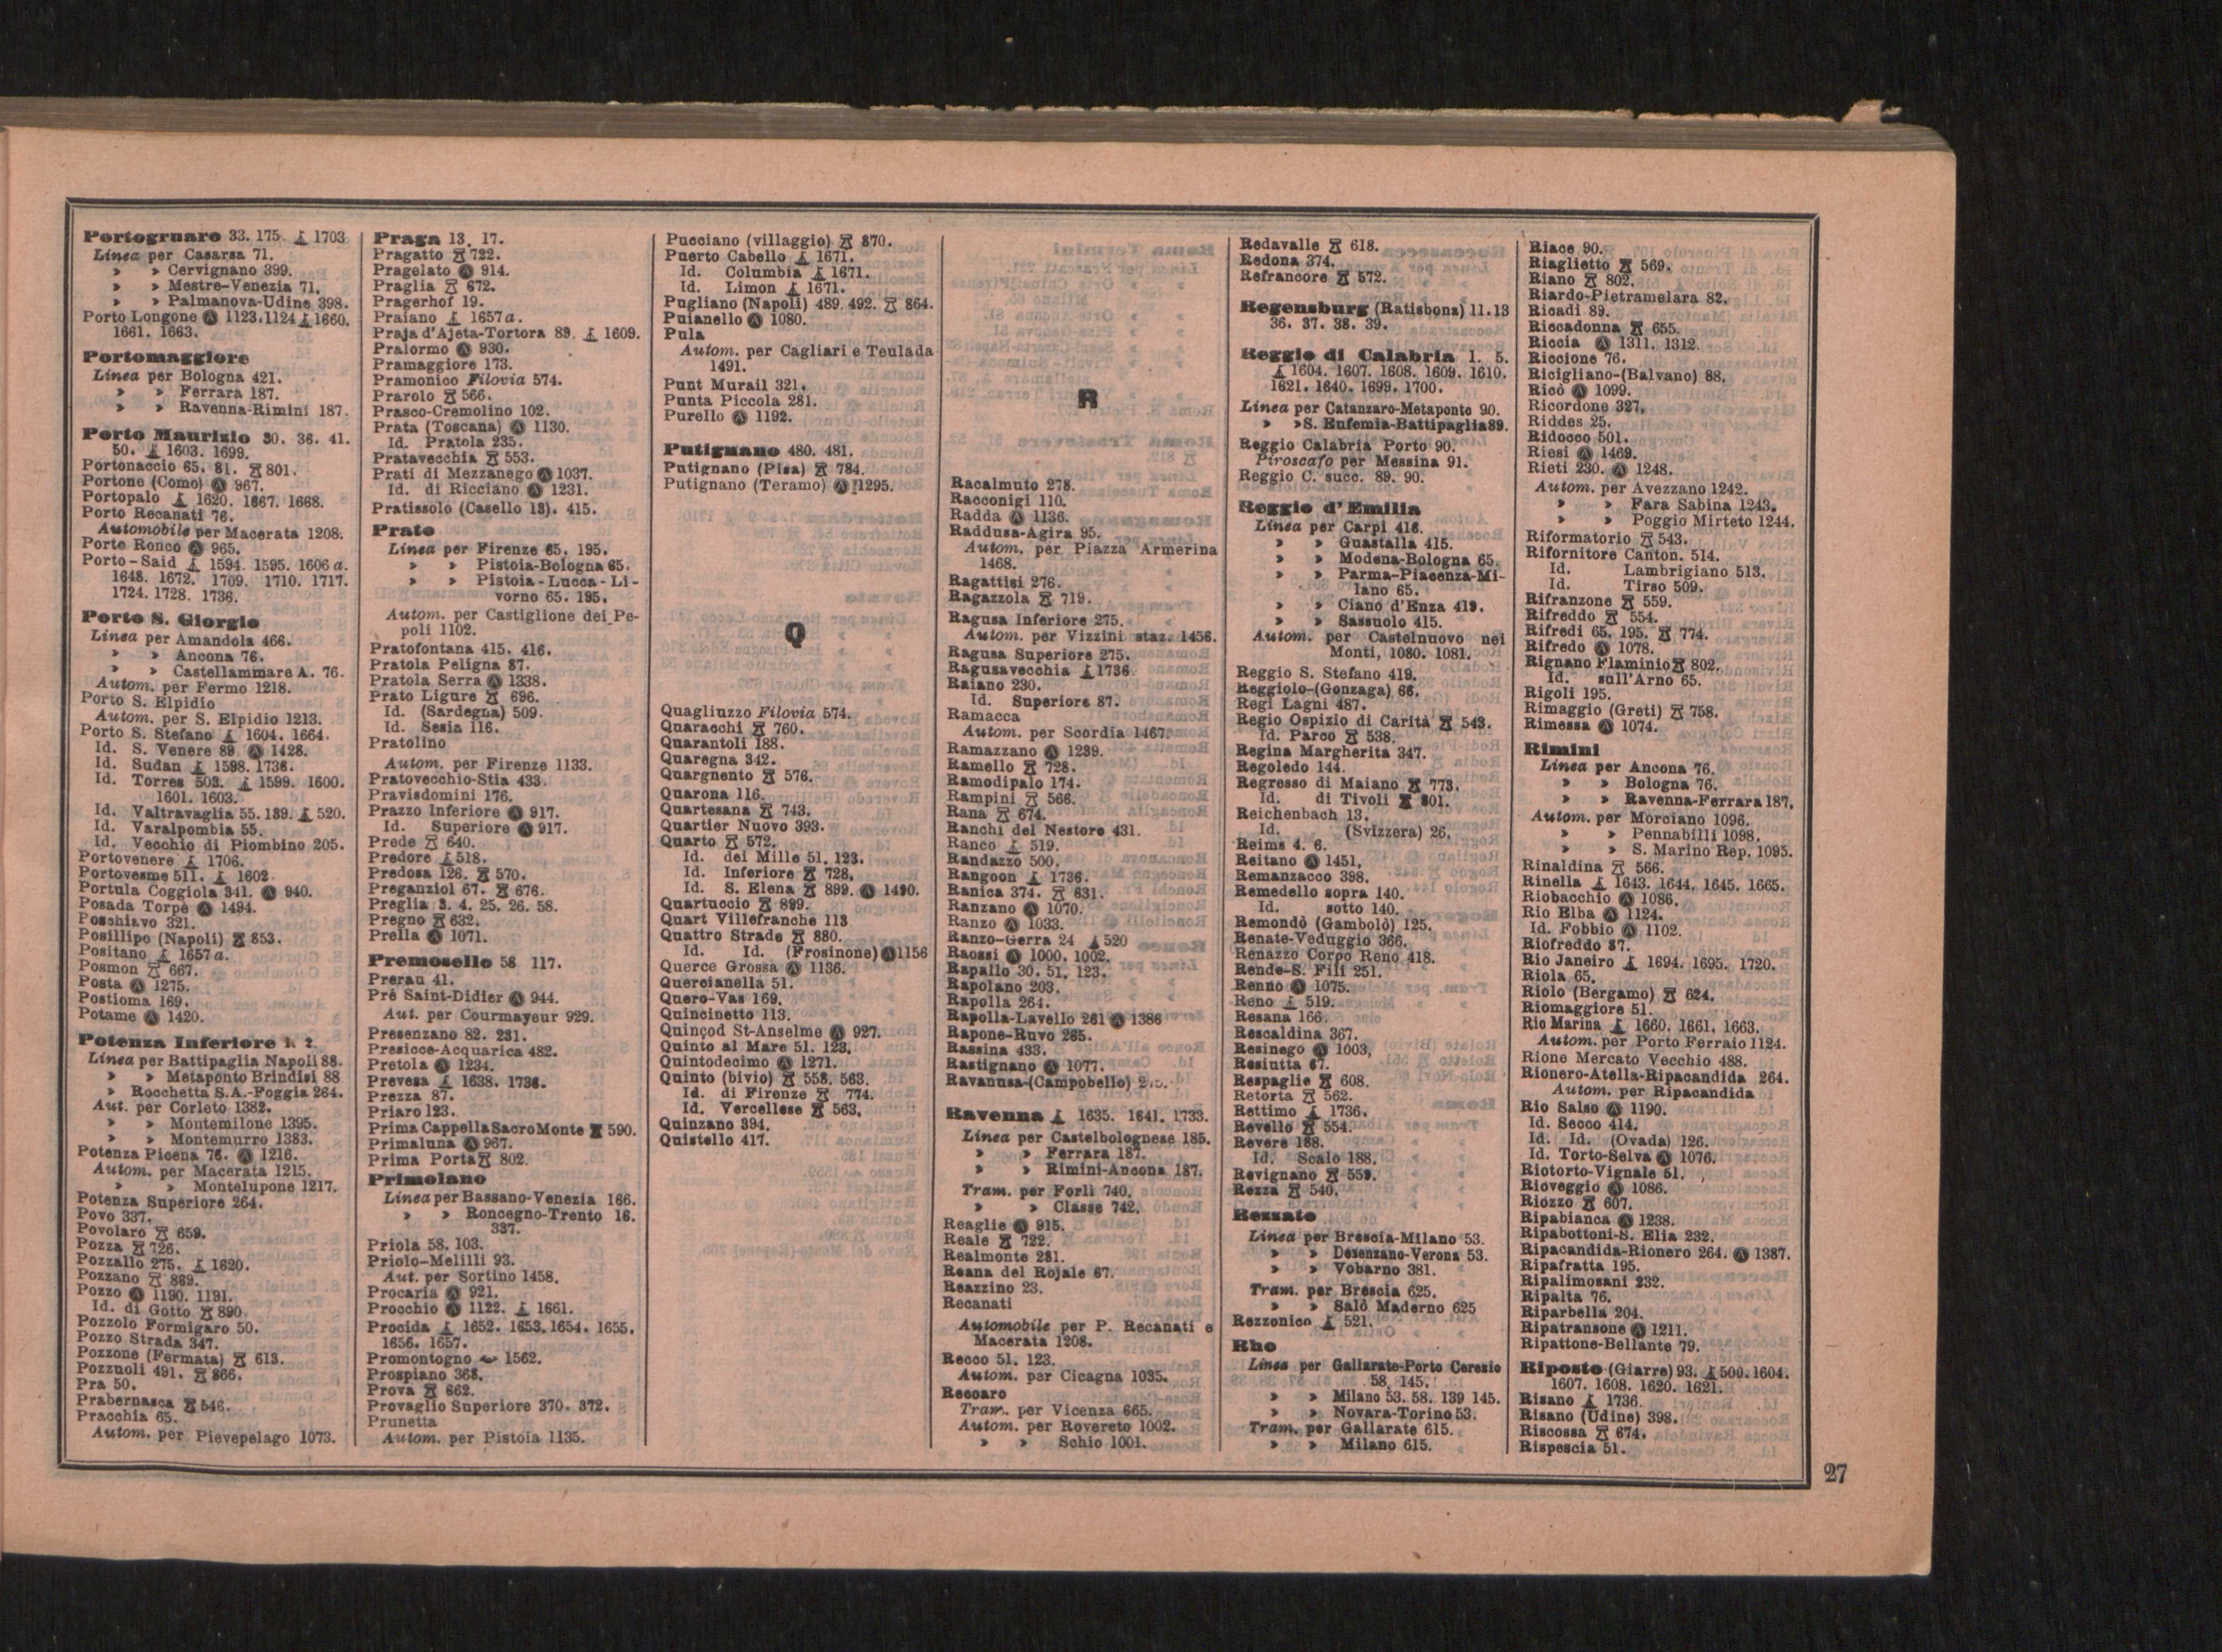 Portogruaro 33. 175. 1703
Linea per Casarsa 71.
» » Cervignano 399.
» » Mestre-Venezia 71.
» » Palmanova-Udine 398.
Porto Longone Ⓐ 1123. 1124 1660.
1661. 1663.
Portomaggiore
Linea per Bologna 421.
» » Ferrara 187.
» » Ravenna-Rimini 187.
Porto Maurizio 30. 36. 41.
50. 1603. 1699.
Portonaccio 65. 81. 801.
Portone (Como) Ⓐ 967.
Portopalo 1620. 1667. 1668.
Porto Recanati 76.
Automobile per Macerata 1208.
Porto Ronco Ⓐ 965.
Porto-Said 1594. 1595. 1606 a.
1648. 1672. 1709. 1710. 1717.
1724. 1728. 1736.
Porto S. Giorgio
Linea per Amandola 466.
» » Ancona 76.
» » Castellammare A. 76.
Autom. per Fermo 1218.
Porto S. Elpidio
Autom. per S. Elpidio 1213.
Porto S. Stefano 1604. 1664.
Id. S. Venere 89 Ⓐ 1428.
Id. Sudan 1598. 1736.
Id. Torres 503. 1599. 1600.
1601. 1603.
Id. Valtravaglia 55. 139. 520.
Id. Varalpombia 55.
Id. Vecchio di Piombino 205.
Portovenere 1706.
Portovesme 511. 1602
Portula Coggiola 341. Ⓐ 940.
Posada Torpè Ⓐ 1494.
Poschiavo 321.
Posillipo (Napoli) 853.
Positano 1657 a.
Posmon 667.
Posta Ⓐ 1275.
Postioma 169.
Potame Ⓐ 1420.
Potenza Inferiore 1. 2.
Linea per Battipaglia Napoli 88.
» » Metaponto Brindisi 88
» Rocchetta S.A.-Foggia 264.
Aut. per Corleto 1382.
» » Montemilone 1395.
» » Montemurro 1383.
Potenza Picena 76. Ⓐ 1216.
Autom. per Macerata 1215.
» » Montelupone 1217.
Potenza Superiore 264.
Povo 337.
Povolaro 659.
Pozza 726.
Pozzallo 275. 1620.
Pozzano 869.
Pozzo Ⓐ 1190. 1191.
Id. di Gotto 890
Pozzolo Formigaro 50.
Pozzo Strada 347.
Pozzone (Fermata) 613.
Pozzuoli 491. 866.
Pra 50.
Prabernasca 546.
Pracchia 65.
Autom. per Pievepelago 1073.
Praga 13. 17.
Pragatto 722.
Pragelato Ⓐ 914.
Praglia 672.
Pragerhof 19.
Praiano 1657 a.
Praja d'Ajeta-Tortora 89. 1609.
Pralormo Ⓐ 930.
Pramaggiore 173.
Pramonico Filovia 574.
Prarolo 566.
Prasco-Cremolino 102.
Prata (Toscana) Ⓐ 1130.
Id. Pratola 235.
Pratavecchia 553.
Prati di Mezzanego Ⓐ 1037.
Id. di Ricciano Ⓐ 1231.
Pratissolo (Casello 13). 415.
Prato
Linea per Firenze 65. 195.
» » Pistoia-Bologna 65.
» » Pistoia-Lucca-Li-
vorno 65. 195.
Autom. per Castiglione dei Pe-
poli 1102.
Pratofontana 415. 416.
Pratola Peligna 87.
Pratola Serra Ⓐ 1338.
Prato Ligure 696.
Id. (Sardegna) 509.
Id. Sesia 116.
Pratolino
Autom. per Firenze 1133.
Pratovecchio-Stia 433.
Pravisdomini 176.
Prazzo Inferiore Ⓐ 917.
Id. Superiore Ⓐ 917.
Prede 640.
Predore 518.
Predosa 126. 570.
Preganziol 67. 676.
Preglia 3. 4. 25. 26. 58.
Pregno 632.
Prella Ⓐ 1071.
Premosello 58 117.
Prerau 41.
Pré Saint-Didier Ⓐ 944.
Aut. per Courmayeur 929.
Presenzano 82. 231.
Presicce-Acquarica 482.
Pretola Ⓐ 1234.
Prevesa 1638. 1736.
Prezza 87.
Priaro 123.
Prima Cappella Sacro Monte 590.
Primaluna Ⓐ 967.
Prima Porta 802.
Primolano
Linea per Bassano-Venezia 166.
» » Roncegno-Trento 16.
337.
Priola 58. 103.
Priolo-Melilli 93.
Aut. per Sortino 1458.
Procaria Ⓐ 921.
Procchio Ⓐ 1122. 1661.
Procida 1652. 1653. 1654. 1655.
1656. 1657.
Promontogno 1562.
Prospiano 368.
Prova 662.
Provaglio Superiore 370. 372.
Prunetta
Autom. per Pistoia 1135.
Pucciano (villaggio) 870.
Puerto Cabello 1671.
Id. Columbia 1671.
Id. Limon 1671.
Pugliano (Napoli) 489. 492. 864.
Puianello Ⓐ 1080.
Pula
Autom. per Cagliari e Teulada
1491.
Punt Murail 321.
Punta Piccola 281.
Purello Ⓐ 1192.
Putignano 480. 481.
Putignano (Pisa) 784.
Putignano (Teramo) Ⓐ 1295.
Q
Quagliuzzo Filovia 574.
Quaracchi 760.
Quarantoli 188.
Quaregna 342.
Quargnento 576.
Quarona 116.
Quartesana 743.
Quartier Nuovo 393.
Quarto 572.
Id. dei Mille 51. 123.
Id. Inferiore 728.
Id. S. Elena 899. Ⓐ 1490.
Quartuccio 899.
Quart Villefranche 113
Quattro Strade 880.
Id. Id. (Frosinone) Ⓐ 1156
Querce Grossa Ⓐ 1136.
Quercianella 51.
Quero-Vas 169.
Quincinetto 113.
Quinçod St-Anselme Ⓐ 927.
Quinto al Mare 51. 123.
Quintodecimo Ⓐ 1271.
Quinto (bivio) 558. 563.
Id. di Firenze 774.
Id. Vercellese 563.
Quinzano 394.
Quistello 417.
R
Racalmuto 278.
Racconigi 110.
Radda Ⓐ 1136.
Raddusa-Agira 95.
Autom. per Piazza Armerina
1468.
Ragattisi 276.
Ragazzola 719.
Ragusa Inferiore 275.
Autom. per Vizzini staz. 1456.
Ragusa Superiore 275.
Ragusavecchia 1736
Raiano 230.
Id. Superiore 87.
Ramacca
Autom. per Scordia 1467.
Ramazzano Ⓐ 1239.
Ramello 728.
Ramodipalo 174.
Rampini 566.
Rana 674.
Ranchi del Nestore 431.
Ranco 519.
Randazzo 500.
Rangoon 1736.
Ranica 374. 631.
Ranzano Ⓐ 1070.
Ranzo Ⓐ 1033.
Ranzo-Gerra 24 520
Raossi Ⓐ 1000. 1002.
Rapallo 30. 51. 123.
Rapolano 203.
Rapolla 264.
Rapolla-Lavello 261 Ⓐ 1386
Rapone-Ruvo 265.
Rassina 433.
Rastignano Ⓐ 1077.
Ravanusa-(Campobello)
Ravenna 1635. 1641. 1733.
Linea per Castelbolognese 185.
» » Ferrara 187.
» » Rimini-Ancona 187.
Tram. per Forlì 740.
» » Classe 742.
Reaglie Ⓐ 915.
Reale 722.
Realmonte 281.
Reana del Rojale 67.
Reazzino 23.
Recanati
Automobile per P. Recanati e
Macerata 1208.
Recco 51. 123.
Autom. per Cicagna 1035.
Recoaro
Tram. per Vicenza 665.
Autom. per Rovereto 1002.
» » Schio 1001.
Redavalle 618.
Redona 374.
Refrancore 572.
Regensburg (Ratisbona) 11. 13
36. 37. 38. 39.
Reggio di Calabria 1. 5.
1604. 1607. 1608. 1609. 1610.
1621. 1640. 1699. 1700.
Linea per Catanzaro-Metaponto 90.
» » S. Eufemia-Battipaglia 89.
Reggio Calabria Porto 90.
Piroscafo per Messina 91.
Reggio C. succ. 89. 90.
Reggio d'Emilia
Linea per Carpi 416.
» » Guastalla 415.
» » Modena-Bologna 65.
» » Parma-Piacenza-Mi-
lano 65.
» » Ciano d'Enza 419.
» » Sassuolo 415.
Autom. per Castelnuovo nei
Monti, 1080. 1081.
Reggio S. Stefano 419.
Reggiolo-(Gonzaga) 66.
Regi Lagni 487.
Regio Ospizio di Carità 543.
Id. Parco 538.
Regina Margherita 347.
Regoledo 144.
Regresso di Maiano 773.
Id. di Tivoli 801.
Reichenbach 13.
Id. (Svizzera) 26.
Reims 4. 6.
Reitano Ⓐ 1451.
Remanzacco 398.
Remedello sopra 140.
Id. sotto 140.
Remondò (Gambolò) 125.
Renate-Veduggio 366.
Renazzo Corpo Reno 418.
Rende-S. Fili 251.
Renno Ⓐ 1075.
Reno 519.
Resana 166.
Rescaldina 367.
Resinego Ⓐ 1003.
Resiutta 67.
Respaglie 608.
Retorta 562.
Rettimo 1736.
Revello 554.
Revere 188.
Id. Scalo 188.
Revignano 559.
Rezza 540.
Rezzato
Linea per Brescia-Milano 53.
» » Desenzano-Verona 53.
» » Vobarno 381.
Tram. per Brescia 625.
» » Salò Maderno 625
Rezzonico 521.
Rho
Linea per Gallarate-Porto Ceresio
58. 145.
» » Milano 53. 58. 139 145.
» » Novara-Torino 53.
Tram. per Gallarate 615.
» » Milano 615.
Riace 90.
Riaglietto 569.
Riano 802.
Riardo-Pietramelara 82.
Ricadi 89.
Riccadonna 655.
Riccia Ⓐ 1311. 1312.
Riccione 76.
Ricigliano-(Balvano) 88.
Ricò Ⓐ 1099.
Ricordone 327.
Riddes 25.
Ridocco 501.
Riesi Ⓐ 1469.
Rieti 230. Ⓐ 1248.
Autom. per Avezzano 1242.
» » Fara Sabina 1243.
» » Poggio Mirteto 1244.
Riformatorio 543.
Rifornitore Canton. 514.
Id. Lambrigiano 513.
Id. Tirso 509.
Rifranzone 559.
Rifreddo 554.
Rifredi 65. 195. 774.
Rifredo Ⓐ 1078.
Rignano Flaminio 802.
Id. sull'Arno 65.
Rigoli 195.
Rimaggio (Greti) 758.
Rimessa Ⓐ 1074.
Rimini
Linea per Ancona 76.
» » Bologna 76.
» » Ravenna-Ferrara 187.
Autom. per Morciano 1096.
» » Pennabilli 1098.
» » S. Marino Rep. 1095.
Rinaldina 566.
Rinella 1643. 1644. 1645. 1665.
Riobacchio Ⓐ 1086.
Rio Elba Ⓐ 1124.
Id. Fobbio Ⓐ 1102.
Riofreddo 87.
Rio Janeiro 1694. 1695. 1720.
Riola 65.
Riolo (Bergamo) 624.
Riomaggiore 51.
Rio Marina 1660. 1661. 1663.
Autom. per Porto Ferraio 1124.
Rione Mercato Vecchio 488.
Rionero-Atella-Ripacandida 264.
Autom. per Ripacandida
Rio Salso Ⓐ 1190.
Id. Secco 414.
Id. Id. (Ovada) 126.
Id. Torto-Selva Ⓐ 1076.
Riotorto-Vignale 51.
Rioveggio Ⓐ 1086.
Riozzo 607.
Ripabianca Ⓐ 1238.
Ripabottoni-S. Elia 232.
Ripacandida-Rionero 264. Ⓐ 1387.
Ripafratta 195.
Ripalimosani 232.
Ripalta 76.
Riparbella 204.
Ripatransone Ⓐ 1211.
Ripattone-Bellante 79.
Riposto (Giarre) 93. 500. 1604.
1607. 1608. 1620. 1621.
Risano 1736.
Risano (Udine) 398.
Riscossa 674.
Rispescia 51.
27